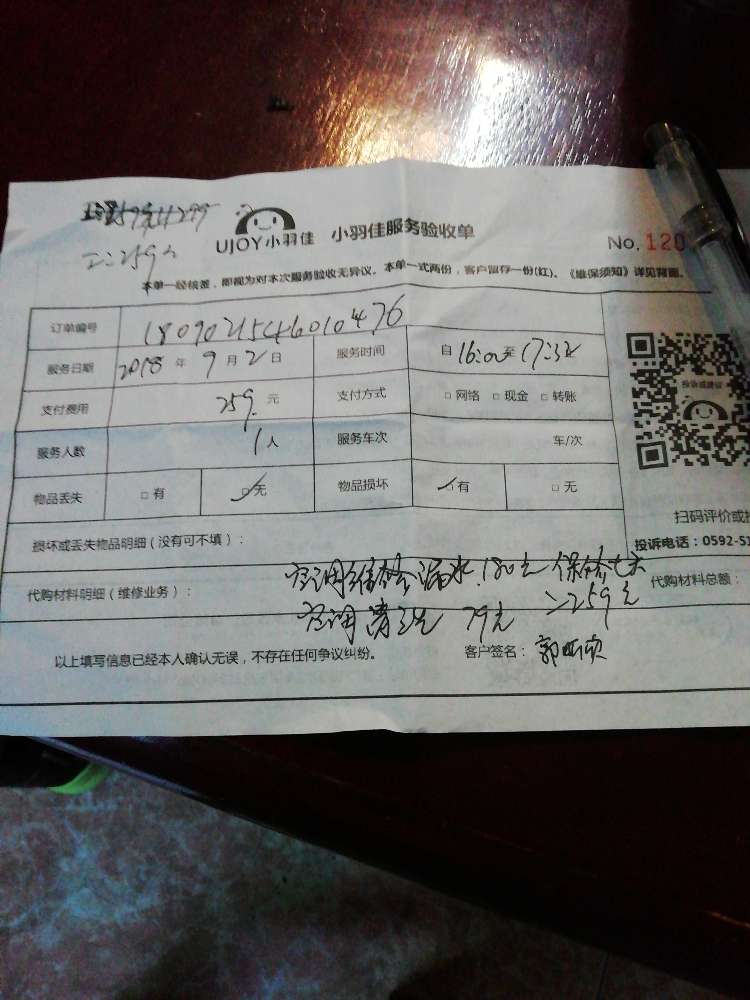 =259元
UJOY小羽佳 小羽佳服务验收单
No. 120
本单一经核签，即视为对本次服务验收无异议。本单一式两份，客户留存一份(红)。《维保须知》详见背面。
订单编号 1809021546010476
服务日期 2018 年 9 月 2 日 服务时间 自 16:00 至 17:32
支付费用 259. 元 支付方式 □ 网络 □ 现金 □ 转账
投诉或建议
服务人数 1 人 服务车次 车/次
物品丢失 □ 有 ☑ 无 物品损坏 ☑ 有 □ 无
扫码评价或
损坏或丢失物品明细（没有可不填）：
投诉电话：0592-51
代购材料明细（维修业务）： 空调维修漏水.180元 保修七天 代购材料总额：
空调清洗 79元 =259元
以上填写信息已经本人确认无误，不存在任何争议纠纷。 客户签名：郭